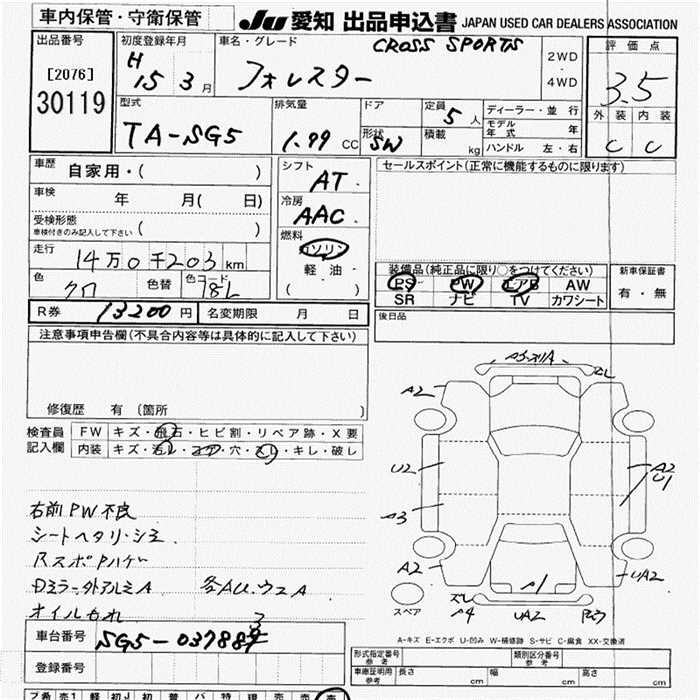 車内保管・守衛保管
JU 愛知 出品申込書 JAPAN USED CAR DEALERS ASSOCIATION
出品番号
[2076]
30119
初度登録年月
H 15 3 月
車名・グレード
CROSS SPORTS
フォレスター
2WD
・
4WD
評価点
3.5
外装 内装
C C
型式
TA-SG5
排気量
1.99 CC
ドア
形状
SW
定員
5 人
積載
kg
ディーラー・並 行
モデル年式 年
ハンドル 左・右
車歴 自家用・( )
車検 年 月( 日)
受検形態
車検付きのみ記入して下さい ( )
走行 14万0千203 km
色 クロ 色替 色コード
R券 13200 円 名変期限 月 日
シフト
AT
冷房
AAC
燃料
ガソリン
軽油
( )
セールスポイント(正常に機能するものに限ります)
装備品(純正品に限り○をつけてください)
PS PW エアB AW
SR ナビ TV カワシート
新車保証書
有・無
後日品
注意事項申告欄(不具合内容等は具体的に記入して下さい)
修復歴 有 〔箇所 〕
検査員
記入欄
FW キズ・飛石・ヒビ割・リペア跡・X要
内装 キズ・汚レ・コゲ・穴・スレ・キレ・破レ
右前PW不良
シートヘタリ・シミ
RスポPハゲ
Dミラー外アルミA 各AU.ウスA
オイルもれ
A2
スレ
U2
A2
U1
A3
A2
UA2
A1
スレ
A4
UA2
スペア
A-キズ E-エクボ U-凹み W-補修跡 S-サビ C-腐食 XX-交換済
車台番号 SG5-037884
3
登録番号
形式指定番号
参考
類別区分番号
参考
車庫証明用
参考
長さ cm
幅 cm
高さ cm